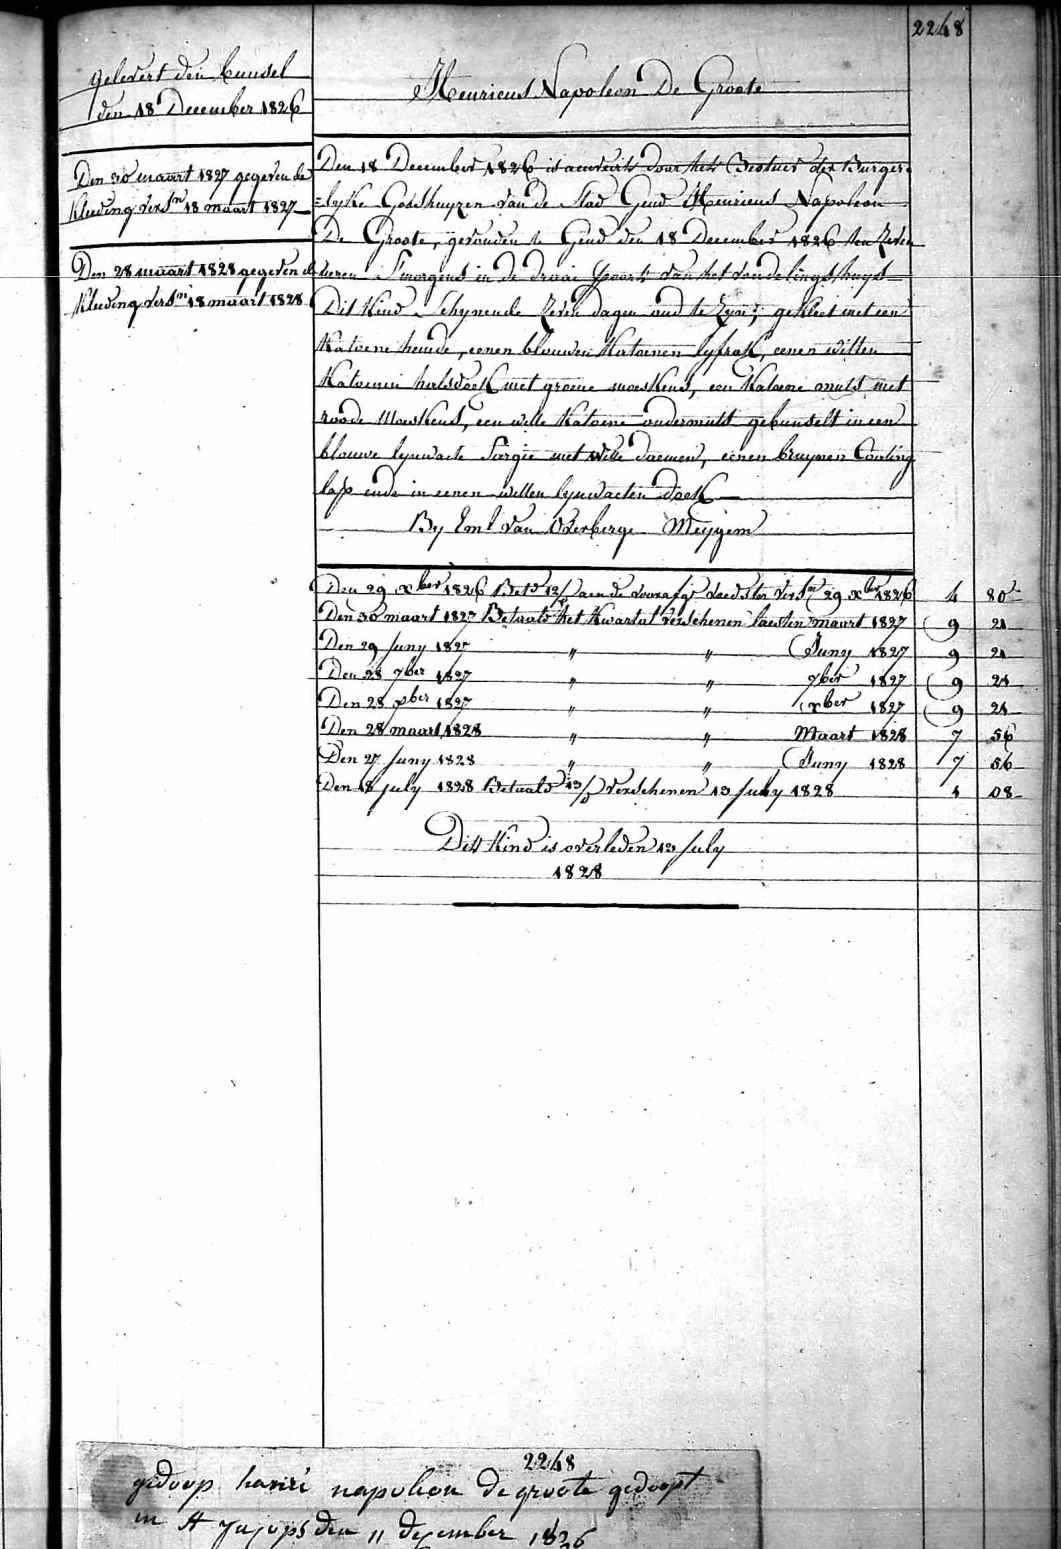 2248
gelevert den bunsel
den 18 December 1826
Den 30 maart 1827 gegeven de
Kleeding vers.n 18 maart 1827
Den 28 maart 1828 gegeven de
Kleeding vers.n 18 maart 1828
Henricus Napoleon De Groote
Den 18 December 1826 is aenveirt door het Bestuer der Burger-
=lyke Godshuyzen van de Stad Gend Henricus Napoleon
De Groote, gevonden te Gend den 18 December 1826 ten Zeven
ueren 'smorgens in de draai poort van het vondelingshuys
Dit Kind schynende Zeven dagen oud te zyn; gekleet met een
Katoene hemde, eenen blauwen Katoenen lyfrok, eenen witten
Katoenen halsdoek met groene moeskens, een Katoene muts met
roode Moeskens, een witte Katoene ondermuts gebunselt in een
blauwe lynwaete Sargie met witte , eenen bruynen
lap ende in eenen witten lynwaeten doek
By Em.l van Overberge Meygem
Den 29 xber 1826 Bet.d 12/ aen de voedster vers.n 29 xber 1826 4 80
Den 30 maart 1827 Betaald het Kwartal verschenen laesten maart 1827 9 21
Den 29 Juny 1827 " " Juny 1827 9 21
Den 28 7ber 1827 " " 7ber 1827 9 21
Den 28 xber 1827 " " xber 1827 9 21
Den 28 maart 1828 " " Maart 1828 7 56
Den 27 Juny 1828 " " Juny 1828 7 56
Den 18 July 1828 Betaald 13/ verschenen 13 July 1828 1 08
Dit Kind is overleden 13 July
1828
2248
gedoop hanri napoleon de groote gedoopt
in St Jacops den 11 december 1826